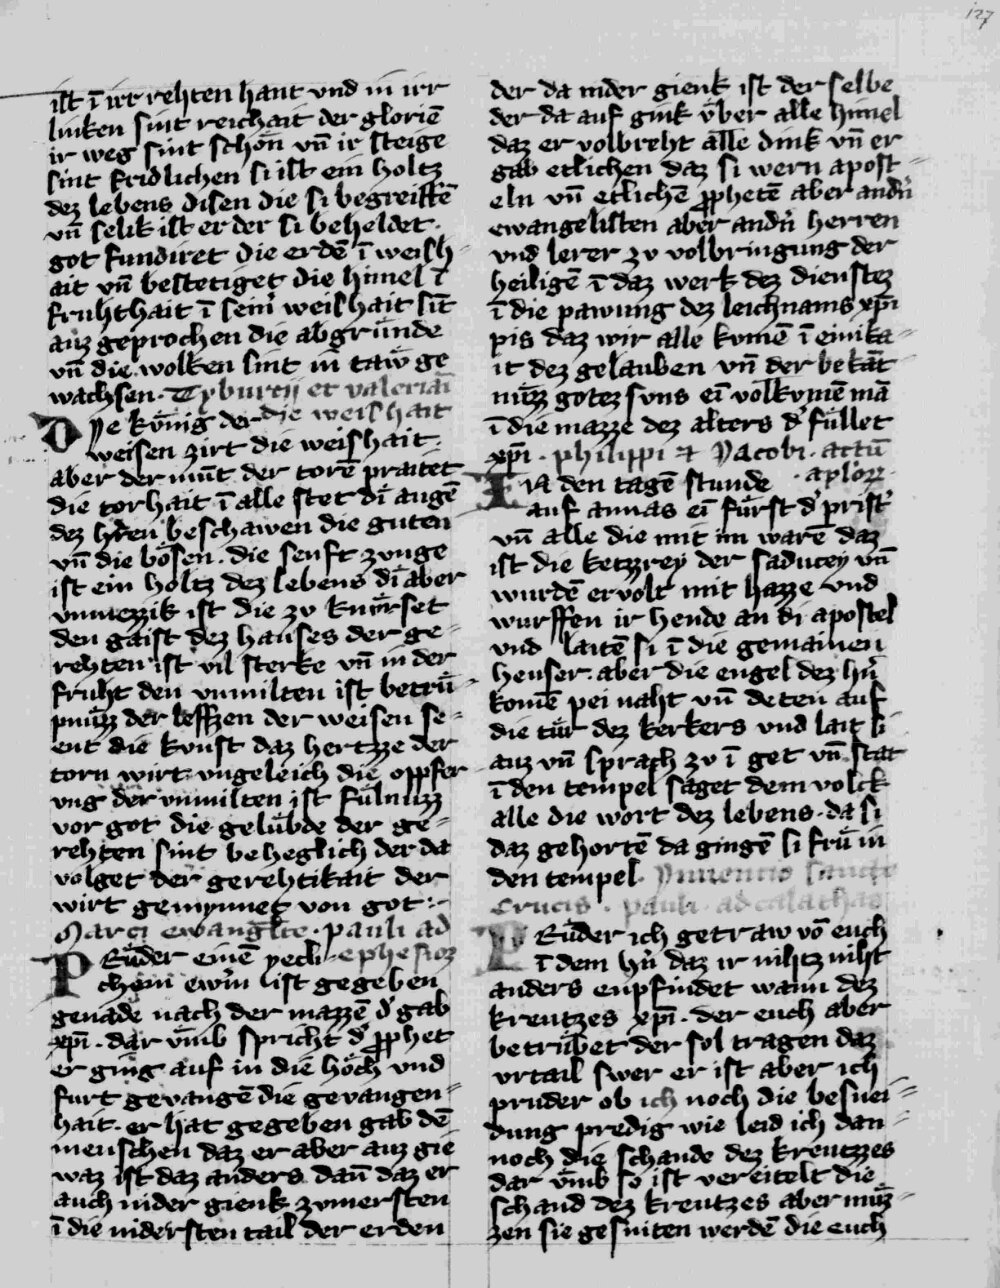 127
ist ī irr rehten hant vnd in irr
linken sint reichait der gloriē
ir weg sint schön vn̄ ir steige
sint fridlichen si ist ein holtz
dez lebens disen die si begreiffē
vn̄ selik ist er der si beheldet.
got fundiret die erdē ī weish-
ait vn̄ bestetiget die himel ī
fruhthait ī sein̄ weishait sīt
auz geprochen die abgründe
vn̄ die wolken sint in taw ge
wachsen. Tyburtij et valeriaī
Dye künig der die weishait
weisen zirt die weishait.
aber der munt der torē praitet
die torhait ī alle stet dī augē
dez hren beschawen die guten
vn̄ die bösen. die senft zvnge
ist ein holtz dez lebens dī aber
vnmezzik ist die zv knürset
den gaist dez hauses der ge-
rehten ist vil sterke vn̄ in der
fruht den vnmilten ist betrü-
pnüzz der leffzen der weisen se-
ent die kvnst daz hertzze der
torn wirt vngeleich die oppfer
vng der vnmilten ist fülnuzz
vor got die gelübde der ge-
rehten sint beheglich der da
volget der gerehtikait der
wirt gemynnet von got:-
Marci ewangl̄te. pauli ad
PRuder einē yecli- ephesioz
chem ewn̄ ist gegeben
genade nach der mazzē d' gab
xp̄i. dar vmb spricht d' p̄phet
er ging auf in die höch vnd
furt gevangē die gevangen-
hait. er hat gegeben gab dē
menschen daz er aber auz gie
waz ist daz anders dan̄ daz er
auch nider gienk zvmersten
ī die nidersten tail der erden
der da nider gienk ist der selbe
der da auf gink vber alle himel
daz er volbreht alle dink vn̄ er
gab etlichen daz si wern apost-
eln vn̄ etlichē p̄phetē aber andn̄
ewangelisten aber andn̄ herren
vnd lerer zv volbringung der
heiligē ī daz werk dez dienstez
ī die pawung dez leichnams xp̄i
pis daz wir alle kvmē ī einika-
it dez gelauben vn̄ der bekāt
nüzz gotez svns eī volkvmē mā
ī die mazze dez alters d' füllet
xp̄i. philippi et Jacobi. actū
aplorz
IN den tagē stunde
auf annas eī fürst d' prist'
vn̄ alle die mit im warē daz
ist die ketzzrey der saducey vn̄
wurdē ervolt mit hazze vnd
wurffen ir hende an di apostel
vnd laitē si ī die gemainen
heuser. aber die engel dez hn̄
komē pei naht vn̄ deten auf
die tür dez kerkers vnd lait si
auz vn̄ sprach zv ī get vn̄ stat
ī den tempel saget dem volck
alle die wort dez lebens. da si
daz gehortē da gingē si frü in
den tempel. Inuencio sancte
crucis. pauli. ad calathas
PRuder ich getraw vō euch
ī dem hn̄ daz ir nihtz niht
anders enpfindet wann dez
kreutzes xp̄i. der euch aber
betrübet der sol tragen daz
vrtail swer er ist aber ich
pruder ob ich noch die besnei-
dung predig wie leid ich dan-
noch die schande dez kreutzzes
dar vmb so ist vereitelt die
schand dez kreutzes aber müz-
zen sie gesniten werdē die euch